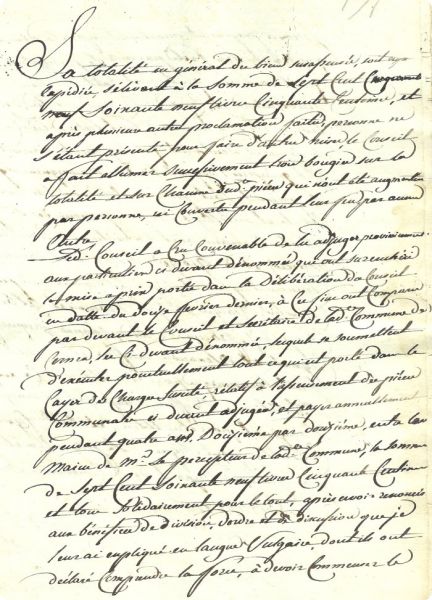 La totalité en général du bien susaffermé, soit cy
expédiée s'élévant à la Somme de Sept Cent
neuf Soixante neuf livre Cinquante Centime, et
après plusieurs autre proclamation faite, personne ne
s'étant présenté pour faire d'autre mise le Conseil
a fait allumer successivement trois bougies sur la
totalité et sur Chacune desd.e pièce qui n'ont été augmenté
par personne, ni Couverte pendant leur feu par aucun
Enchère
Led.t Conseil a Cru Convenable de les adjuger provisoirement
aux particulier ci devant dénommé que ont
la mise a prix porté dans la Délibération du Conseil
en datte du Douze fevrier dernier, à Ce fin ont Comparu
par devant le Conseil et Secrétaire de lad.e Commune de
les Ci devant dénommé, lesquels se soumettent
d'executer ponctuellement tout ce qui est porté dans le
Cayer des Charges Surdité, rélatif à l'affermement des pièces
Communales ci devant adjugée, et payer annuellement
pendant quatre ans, Douzième par douzième, entre les
Mains de M.r le percepteur de lad.e Commune, la somme
de Sept Cent Soixante neuf livres Cinquante Centime
et tous Solidairement pour le tout, après avoir renoncé
aux bénéfices de Division, d'ordre et de discussion que je
leur ai expliqué en langue Vulgaire, dont ils ont
déclaré Comprendre la force, à devoir Commencer le